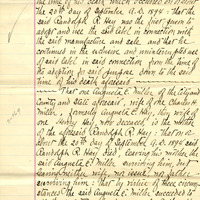 the time of his death which occurred on or about
the 20th day of September A.D. 1895. That the
said Randolph R. Hay was the first person to
adopt and use the said label in connection with
the said manufacture and sale, and that he
continued in the exclusive and uninterrupted use
of said label in said connection from the time of
its adoption for said purpose down to the said
time of his death aforesaid.
That one Augusta E. Miller, of the City and
County and State aforesaid, wife of one Charles H.
Miller, formerly Augusta E. Hay, the wife of
one Henry Hay, now deceased, is the mother
of the aforesaid Randolph R. Hay: that on or
about the 20th day of September A.D. 1895 said
Randolph R. Hay died, leaving his mother the
said Augusta E. Miller surviving him, but
leaving neither wife, nor issue, nor father
surviving him: that by virtue of these circum-
stances the said Augusta E. Miller